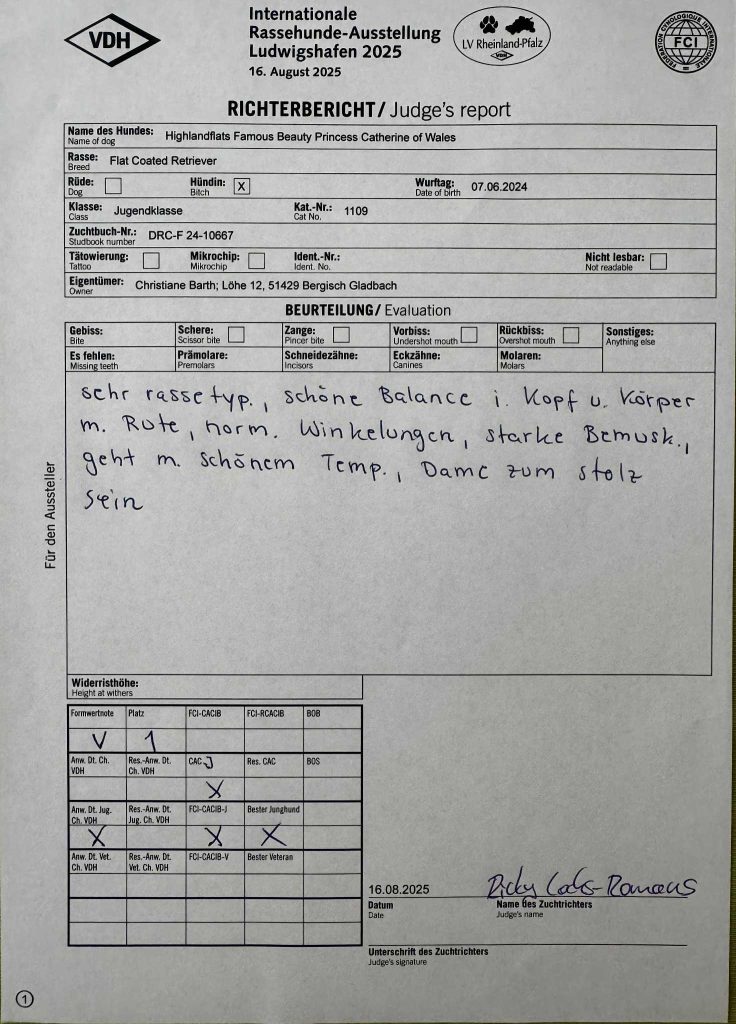 VDH
Internationale
Rassehunde-Ausstellung
Ludwigshafen 2025
16. August 2025
LV Rheinland-Pfalz
VDH
FEDERATION CYNOLOGIQUE INTERNATIONALE
FCI
RICHTERBERICHT/ Judge's report
Name des Hundes: Highlandflats Famous Beauty Princess Catherine of Wales
Name of dog
Rasse: Flat Coated Retriever
Breed
Rüde: Hündin: X Wurftag: 07.06.2024
Dog Bitch Date of birth
Klasse: Jugendklasse Kat.-Nr.: 1109
Class Cat No.
Zuchtbuch-Nr.: DRC-F 24-10667
Studbook number
Tätowierung: Mikrochip: Ident.-Nr.: Nicht lesbar:
Tattoo Mikrochip Ident. No. Not readable
Eigentümer: Christiane Barth; Löhe 12, 51429 Bergisch Gladbach
Owner
BEURTEILUNG/ Evaluation
Gebiss: Schere: Zange: Vorbiss: Rückbiss: Sonstiges:
Bite Scissor bite Pincer bite Undershot mouth Overshot mouth Anything else
Es fehlen: Prämolare: Schneidezähne: Eckzähne: Molaren:
Missing teeth Premolars Incisors Canines Molars
sehr rassetyp., schöne Balance i. Kopf u. Körper
m. Rute, norm. Winkelungen, starke Bemusk.,
geht m. schönem Temp., Dame zum stolz
sein
Für den Aussteller
Widerristhöhe:
Height at withers
Formwertnote Platz FCI-CACIB FCI-RCACIB BOB
V 1
Anw. Dt. Ch. VDH Res.-Anw. Dt. Ch. VDH CAC J Res. CAC BOS
X
Anw. Dt. Jug. Ch. VDH Res.-Anw. Dt. Jug. Ch. VDH FCI-CACIB-J Bester Junghund
X X X
Anw. Dt. Vet. Ch. VDH Res.-Anw. Dt. Vet. Ch. VDH FCI-CACIB-V Bester Veteran
16.08.2025
Datum Name des Zuchtrichters
Date Judge's name
Unterschrift des Zuchtrichters
Judge's signature
1